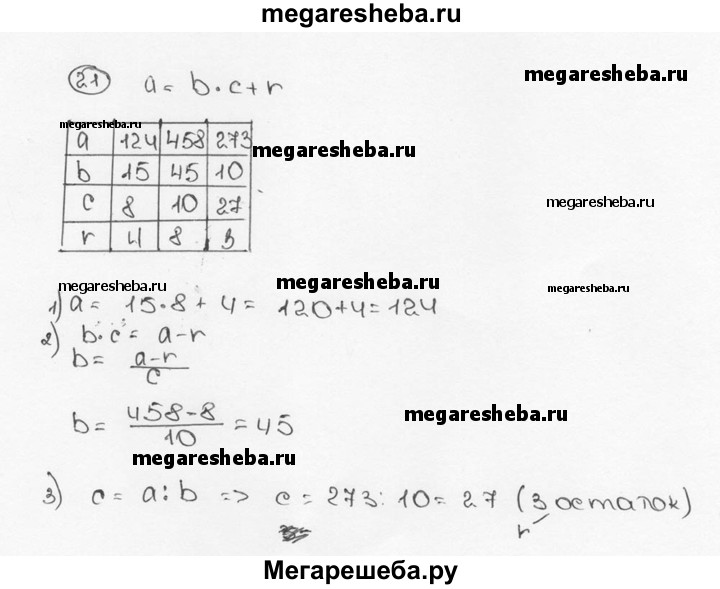 megaresheba.ru
21 a = b · c + r
megaresheba.ru
megaresheba.ru
a 124 458 273
megaresheba.ru
b 15 45 10
c 8 10 27
megaresheba.ru
r 4 8 3
megaresheba.ru
megaresheba.ru
megaresheba.ru
1) a = 15 · 8 + 4 = 120 + 4 = 124
2) b · c = a - r
b = a - r / c
b = 458 - 8 / 10 = 45
megaresheba.ru
megaresheba.ru
3) c = a : b => c = 273 : 10 = 27 (3 остаток)
r
Мегарешеба.ру